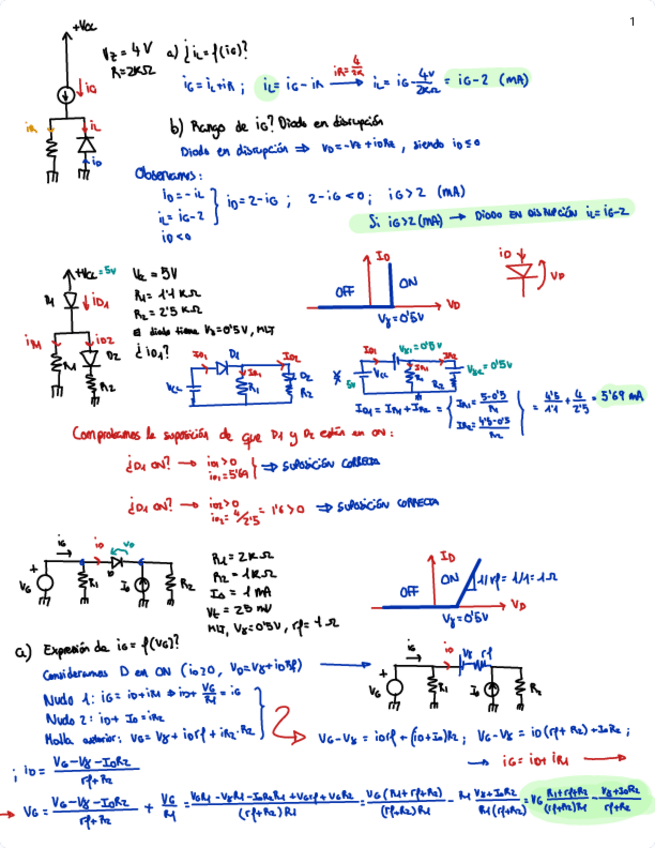 1
+Vcc
Vz = 4V a) ¿iL = f(iG)?
R = 2KΩ
iG
iR iL
iD
iG = iL + iR ; iL = iG - iR iR = 4/2K → iL = iG - 4V/2KΩ = iG - 2 (mA)
b) Rango de iG? Diodo en disrupción
Diodo en disrupción ⇒ VD = -Vz + iDRz, siendo iD ≤ 0
Observamos:
iD = -iL
iL = iG - 2 } iD = 2 - iG ; 2 - iG < 0 ; iG > 2 (mA)
iD < 0
Si iG > 2 (mA) → DIODO EN DISRUPCIÓN iL = iG - 2
+Vcc = 5V
R1 = 1'1 KΩ
R2 = 2'5 KΩ
El diodo tiene Vγ = 0'5V, MLT
¿iD1?
iD1
iR1 iD2
D2
R2
ID
OFF ON
VD
Vγ = 0'5V
iD
VD
ID1 D1 ID2
Vcc IR1 R1 D2 R2
ID1 Vγ1 = 0'5V
5V Vcc R1 R2 Vγ2 = 0'5V
ID1 = IR1 + IR2 = { IR1 = 5-0'5/R1 IR2 = 4'5-0'5/R2 } = 4'5/1'1 + 4/2'5 = 5'69 mA
Comprobamos la suposición de que D1 y D2 están en ON:
¿D1 ON? → iD1 > 0 iD1 = 5'69 } ⇒ SUPOSICIÓN CORRECTA
ON? → iD2 > 0 iD2 = 4/2'5 = 1'6 > 0 ⇒ SUPOSICIÓN CORRECTA
iG iD VD
VG R1 I0 R2
R1 = 2KΩ
R2 = 1KΩ
I0 = 1 mA
Vt = 25 mV
MLT, Vγ = 0'5V, rf = 1 Ω
ID
OFF ON 1/rf = 1/1 = 1Ω
VD
Vγ = 0'5V
a) Expresión de iG = f(VG)?
Consideramos D en ON (iD ≥ 0, VD = Vγ + iDRf)
iG iD Vγ rf
VG R1 I0 R2
Nudo 1: iG = iD + iR1 ⇒ iD + VG/R1 = iG
Nudo 2: iD + I0 = iR2
Malla exterior: VG = Vγ + iDrf + iR2·R2
VG - Vγ = iDrf + (iD + I0)R2 ; VG - Vγ = iD(rf + R2) + I0R2 ;
→ iG = iD + iR1 →
; iD = VG - Vγ - I0R2 / rf + R2
→ VG = VG - Vγ - I0R2 / rf + R2 + VG/R1 = VGR1 - VγR1 - I0R2R1 + VGrf + VGR2 / (rf + R2)R1 = VG(R1 + rf + R2) / (rf + R2)R1 - R1 Vγ + I0R2 / R1(rf + R2) = VG R1 + rf + R2 / (rf + R2)R1 - Vγ + I0R2 / rf + R2